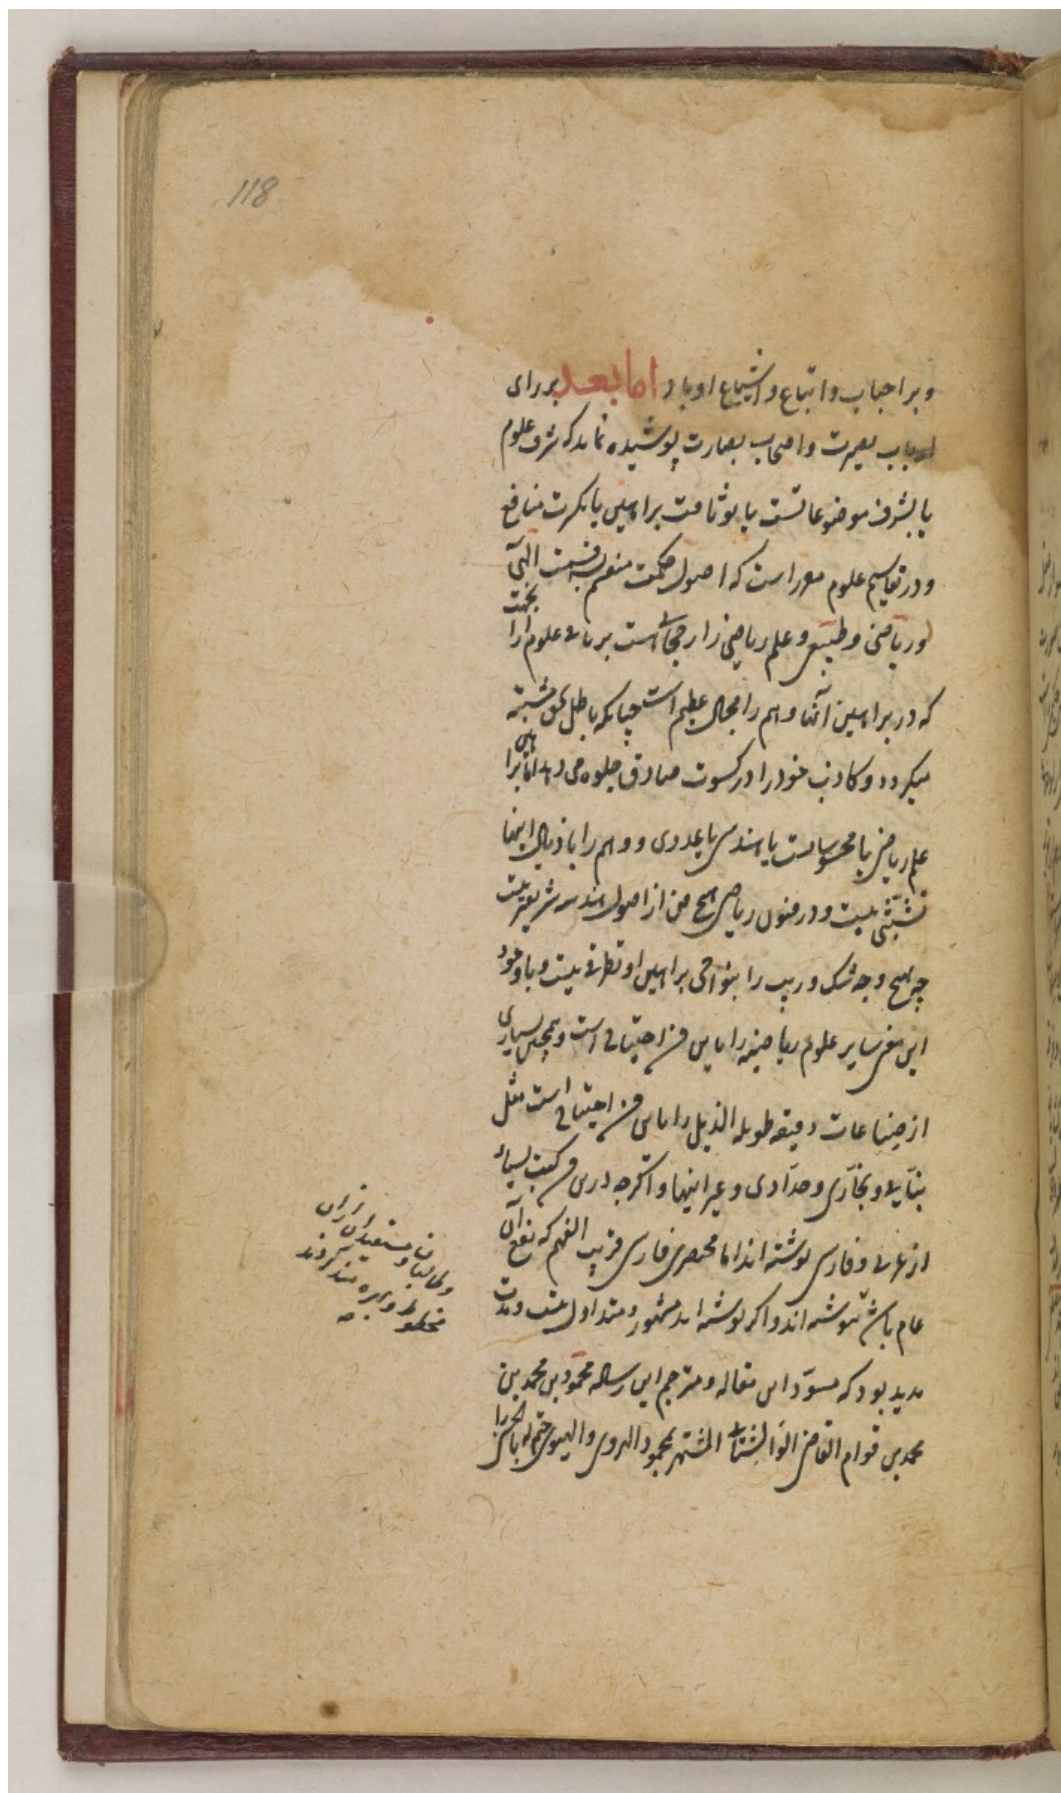 118
و بر احباب و اتباع و اشیاع او باد اما بعد بر رای
ارباب بصیرت و اصحاب بصارت پوشیده نماند که شرف علوم
یا بشرف موضوعاتست یا بوثاقت براهین یا بکثرت منافع
و در تقاسیم علوم مقرر است که اصول حکمت منقسم بسه قسمست الهی
و ریاضی و طبیعی و علم ریاضی را رجحانی است بر باقی علوم بجهت
که در براهین آنها وهم را مجال عظیم است چنانکه باطل بحق مشتبه
میگردد و کاذب خود را در کسوت صادق جلوه می دهد اما براهین
علم ریاضی یا محسوساتست یا هندسی یا عددی و وهم را باذیال اینها
تشبثی نیست و در فنون ریاضی هیچ فن از اصول هندسه شریفتر نیست
چه هیچ وجه شک و ریب را بنواحی براهین او تطرقی نیست و با وجود
این معنی سایر علوم ریاضیه را باین فن احتیاجی است و همچنین بسیاری
از صناعات دقیقه طویله الذیل را باین فن احتیاجی است مثل
بنایی و نجاری و حدادی و غیر اینها و اگرچه درین فن کتب بسیار
از عربی و فارسی نوشته اند اما مختصری فارسی قریب الفهم که نفع آن
عام باشد ننوشته اند و اگر نوشته اند مشهور و متداول نیست و مدت
مدید بود که مسود این مقاله و مترجم این رساله محمود بن محمد بن
محمد بن قوام القاضی المشتهر بمحمود الهروی
و طالبان و مستفیدان از آن
محظوظ و بهره مند گردند